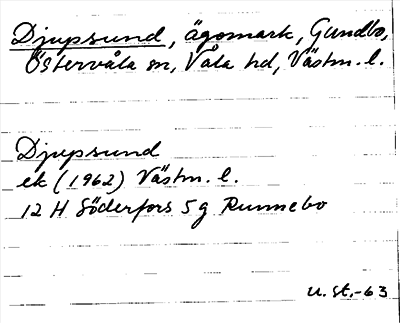 Djupsund, ägomark, Gundbo,
Östervåla sn, Våla hd, Västm. l.
Djupsund
ek (1962) Västm. l.
12 H Söderfors 5 g Runnebo
U. St. -63